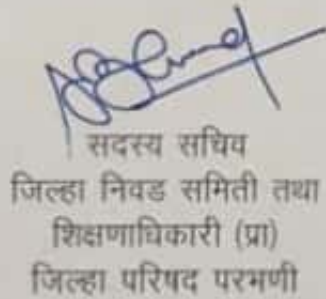 सदस्य सचिव
जिल्हा निवड समिती तथा
शिक्षणाधिकारी (प्रा)
जिल्हा परिषद परभणी